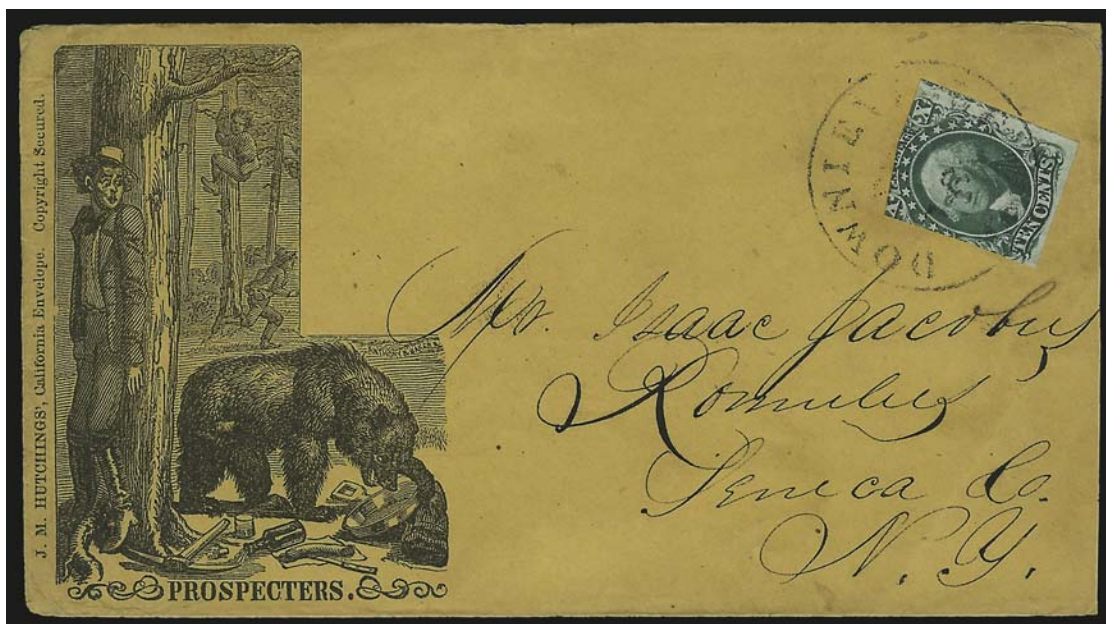 J. M. HUTCHINGS', California Envelope. Copyright Secured.
PROSPECTERS.
DOWNIE
TEN CENTS
Mr. Isaac Jacobus
Romulus
Seneca Co.
N. Y.